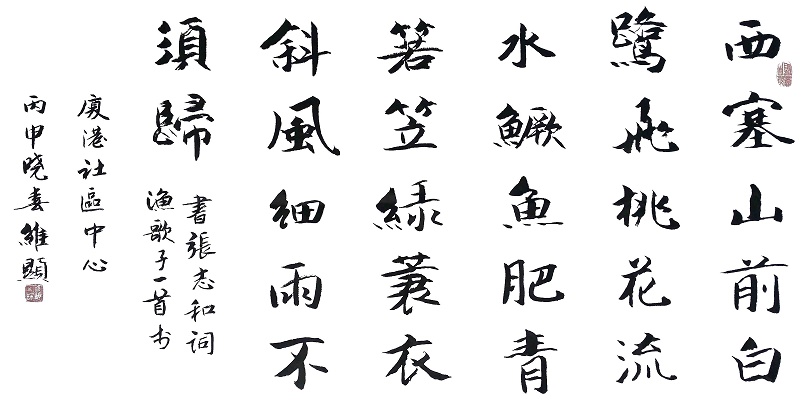 西塞山前白
鷺飛桃花流
水鱖魚肥青
箬笠綠蓑衣
斜風細雨不
須歸
書張志和词
漁歌子一首书
廈港社區中心
丙申晓春維顯